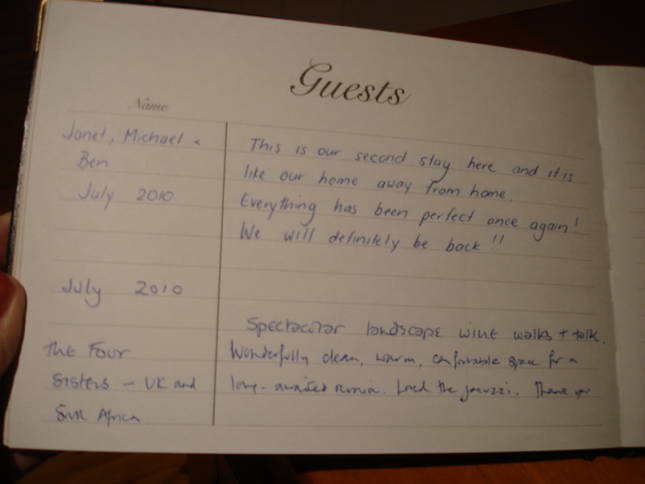 Guests
Name
Janet, Michael &
Ben
July 2010
This is our second stay here and it is
like our home away from home.
Everything has been perfect once again!
We will definitely be back!!
July 2010
The Four
Sisters - UK and
Africa
Spectacular landscape wine walks + talk.
Wonderfully clean, warm, comfortable space for a
long-awaited reunion. Loved the jacuzzi. Thank you